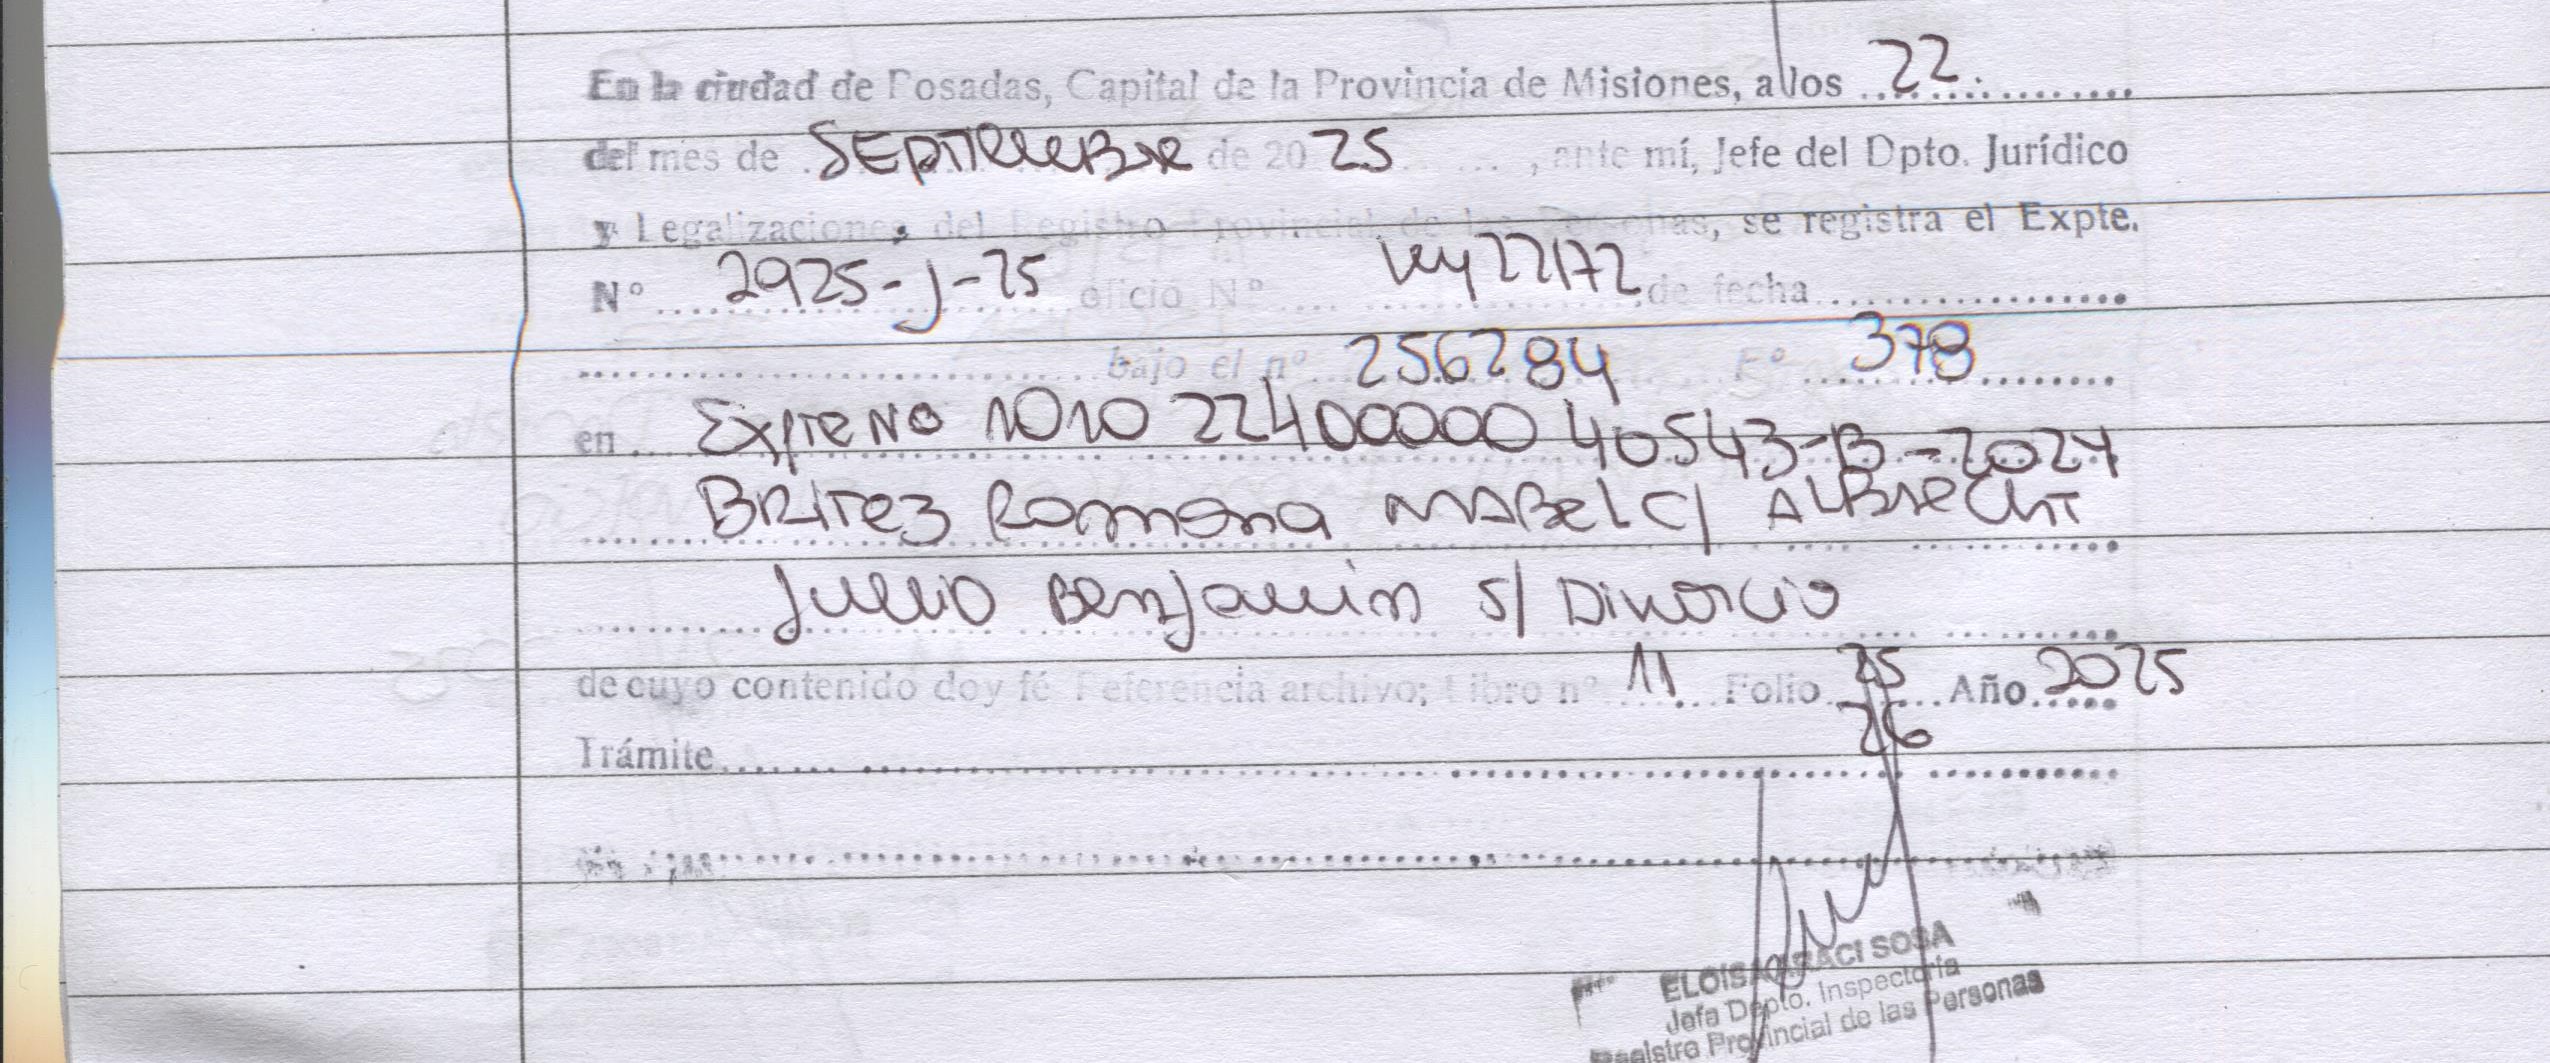 En la ciudad de Posadas, Capital de la Provincia de Misiones, a los 22
del mes de SEPTIEMBRE de 20 25, ante mí, Jefe del Dpto. Jurídico
y Legalizaciones del Registro Provincial de las Personas, se registra el Expte.
N° 2925-J-25 oficio N° Ley 22172 de fecha
bajo el n° 256284 F° 378
en Expte No 1010 22400000 40543-B-2024
BRITEZ Ramona MABEL C/ ALBRECHT
Julio Benjamin S/ Divorcio
de cuyo contenido doy fé Referencia archivo; Libro n° 11 Folio 25 Año 2025
26
Trámite
ELOISA ARACI SOSA
Jefa Depto. Inspectoría
Registro Provincial de las Personas